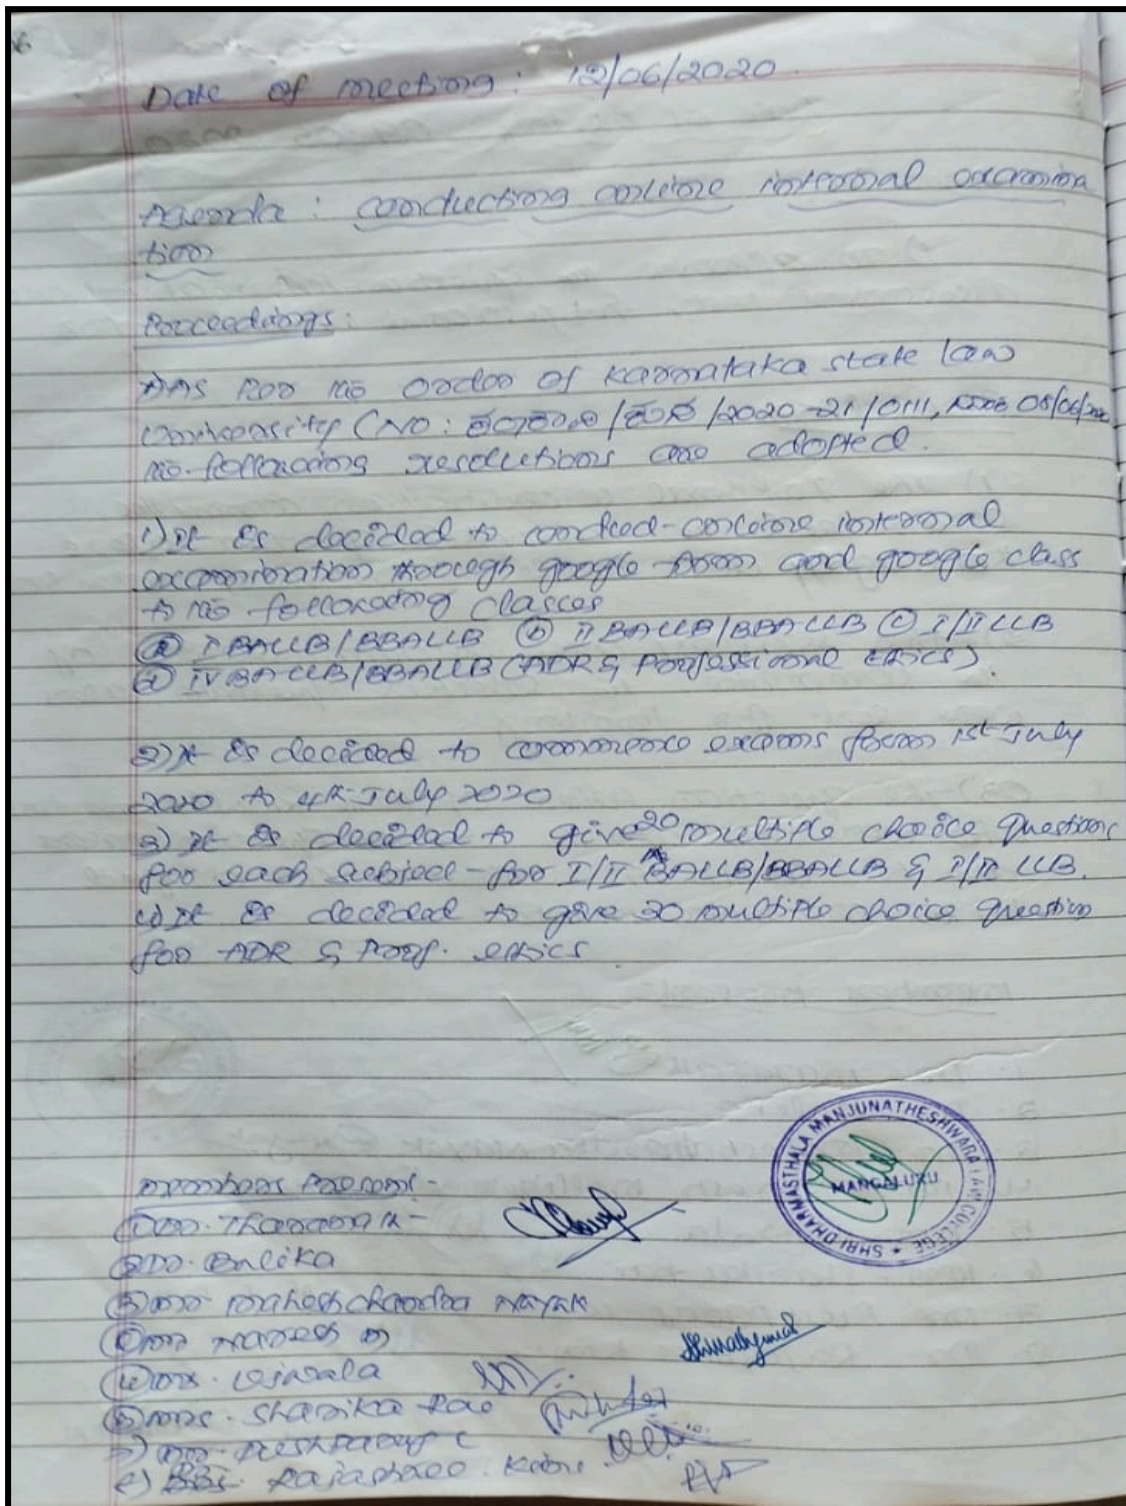 Date of meeting: 12/06/2020
Agenda: conducting online internal examina
tion
Proceedings:
As per the order of Karnataka state law
University (NO: /2020-21/0111, 08/06/2020
the following resolutions are adopted.
1) It is decided to online internal
examination through google form and google class
to the following classes
(a) I BALLB/BBALLB (b) II BALLB/BBALLB (c) I/II LLB
(d) IV BALLB/BBALLB (ADR & Professional ethics).
2) It is decided to commence exams from 1st July
2020 to 4th July 2020
3) It is decided to give 20 multiple choice Questions
for each subject for I/II BALLB/BBALLB & I/II LLB.
4) It is decided to give 30 multiple choice Question
for ADR & Prof. ethics
SHRI DHARMASTHALA MANJUNATHESHWARA LAW COLLEGE
MANGALURU
Members Present -
Dr. Tharanath
Dr. Balika
Mr Maheshchandra Nayak
Mr Naresh M
Mrs.
Mrs. Sharika Rao
Mr.
Rajashree.